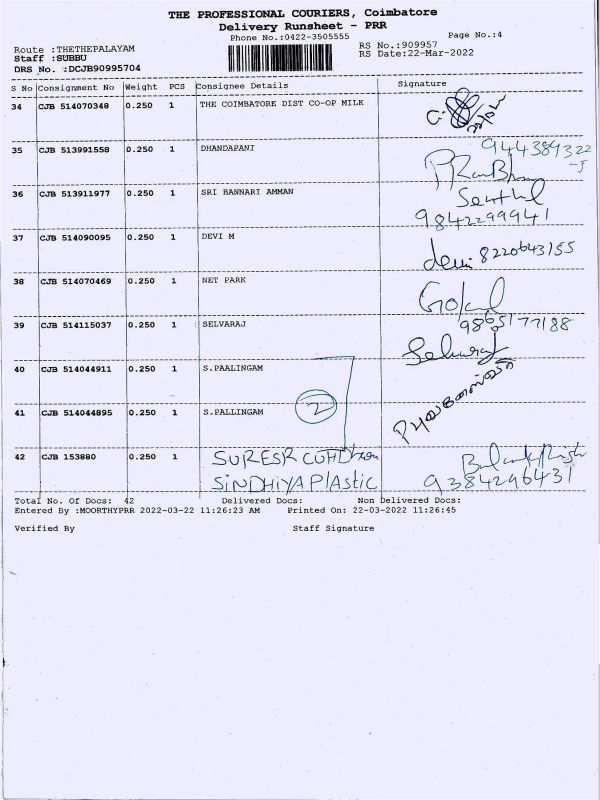 THE PROFESSIONAL COURIERS, Coimbatore
Delivery Runsheet - PRR
Phone No.:0422-3505555
Page No.:4
Route :THETHEPALAYAM
RS No.:909957
Staff :SUBBU
RS Date:22-Mar-2022
DRS No. :DCJB90995704
S No Consignment No Weight PCS Consignee Details Signature
34 CJB 514070348 0.250 1 THE COIMBATORE DIST CO-OP MILK
35 CJB 513991558 0.250 1 DHANDAPANI
36 CJB 513911977 0.250 1 SRI BANNARI AMMAN Senthil
9842299941
37 CJB 514090095 0.250 1 DEVI M devi 8220643155
38 CJB 514070469 0.250 1 NET PARK Gokul
9865177188
39 CJB 514115037 0.250 1 SELVARAJ Selvaraj
40 CJB 514044911 0.250 1 S.PAALINGAM
41 CJB 514044895 0.250 1 S.PALLINGAM 2
42 CJB 153880 0.250 1 SURESR
SiNDHiYA PlAStiC 9384296431
Total No. Of Docs: 42 Delivered Docs: Non Delivered Docs:
Entered By :MOORTHYPRR 2022-03-22 11:26:23 AM Printed On: 22-03-2022 11:26:45
Verified By Staff Signature